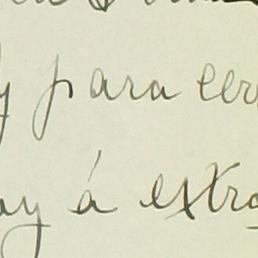 y para cer
ay á extra